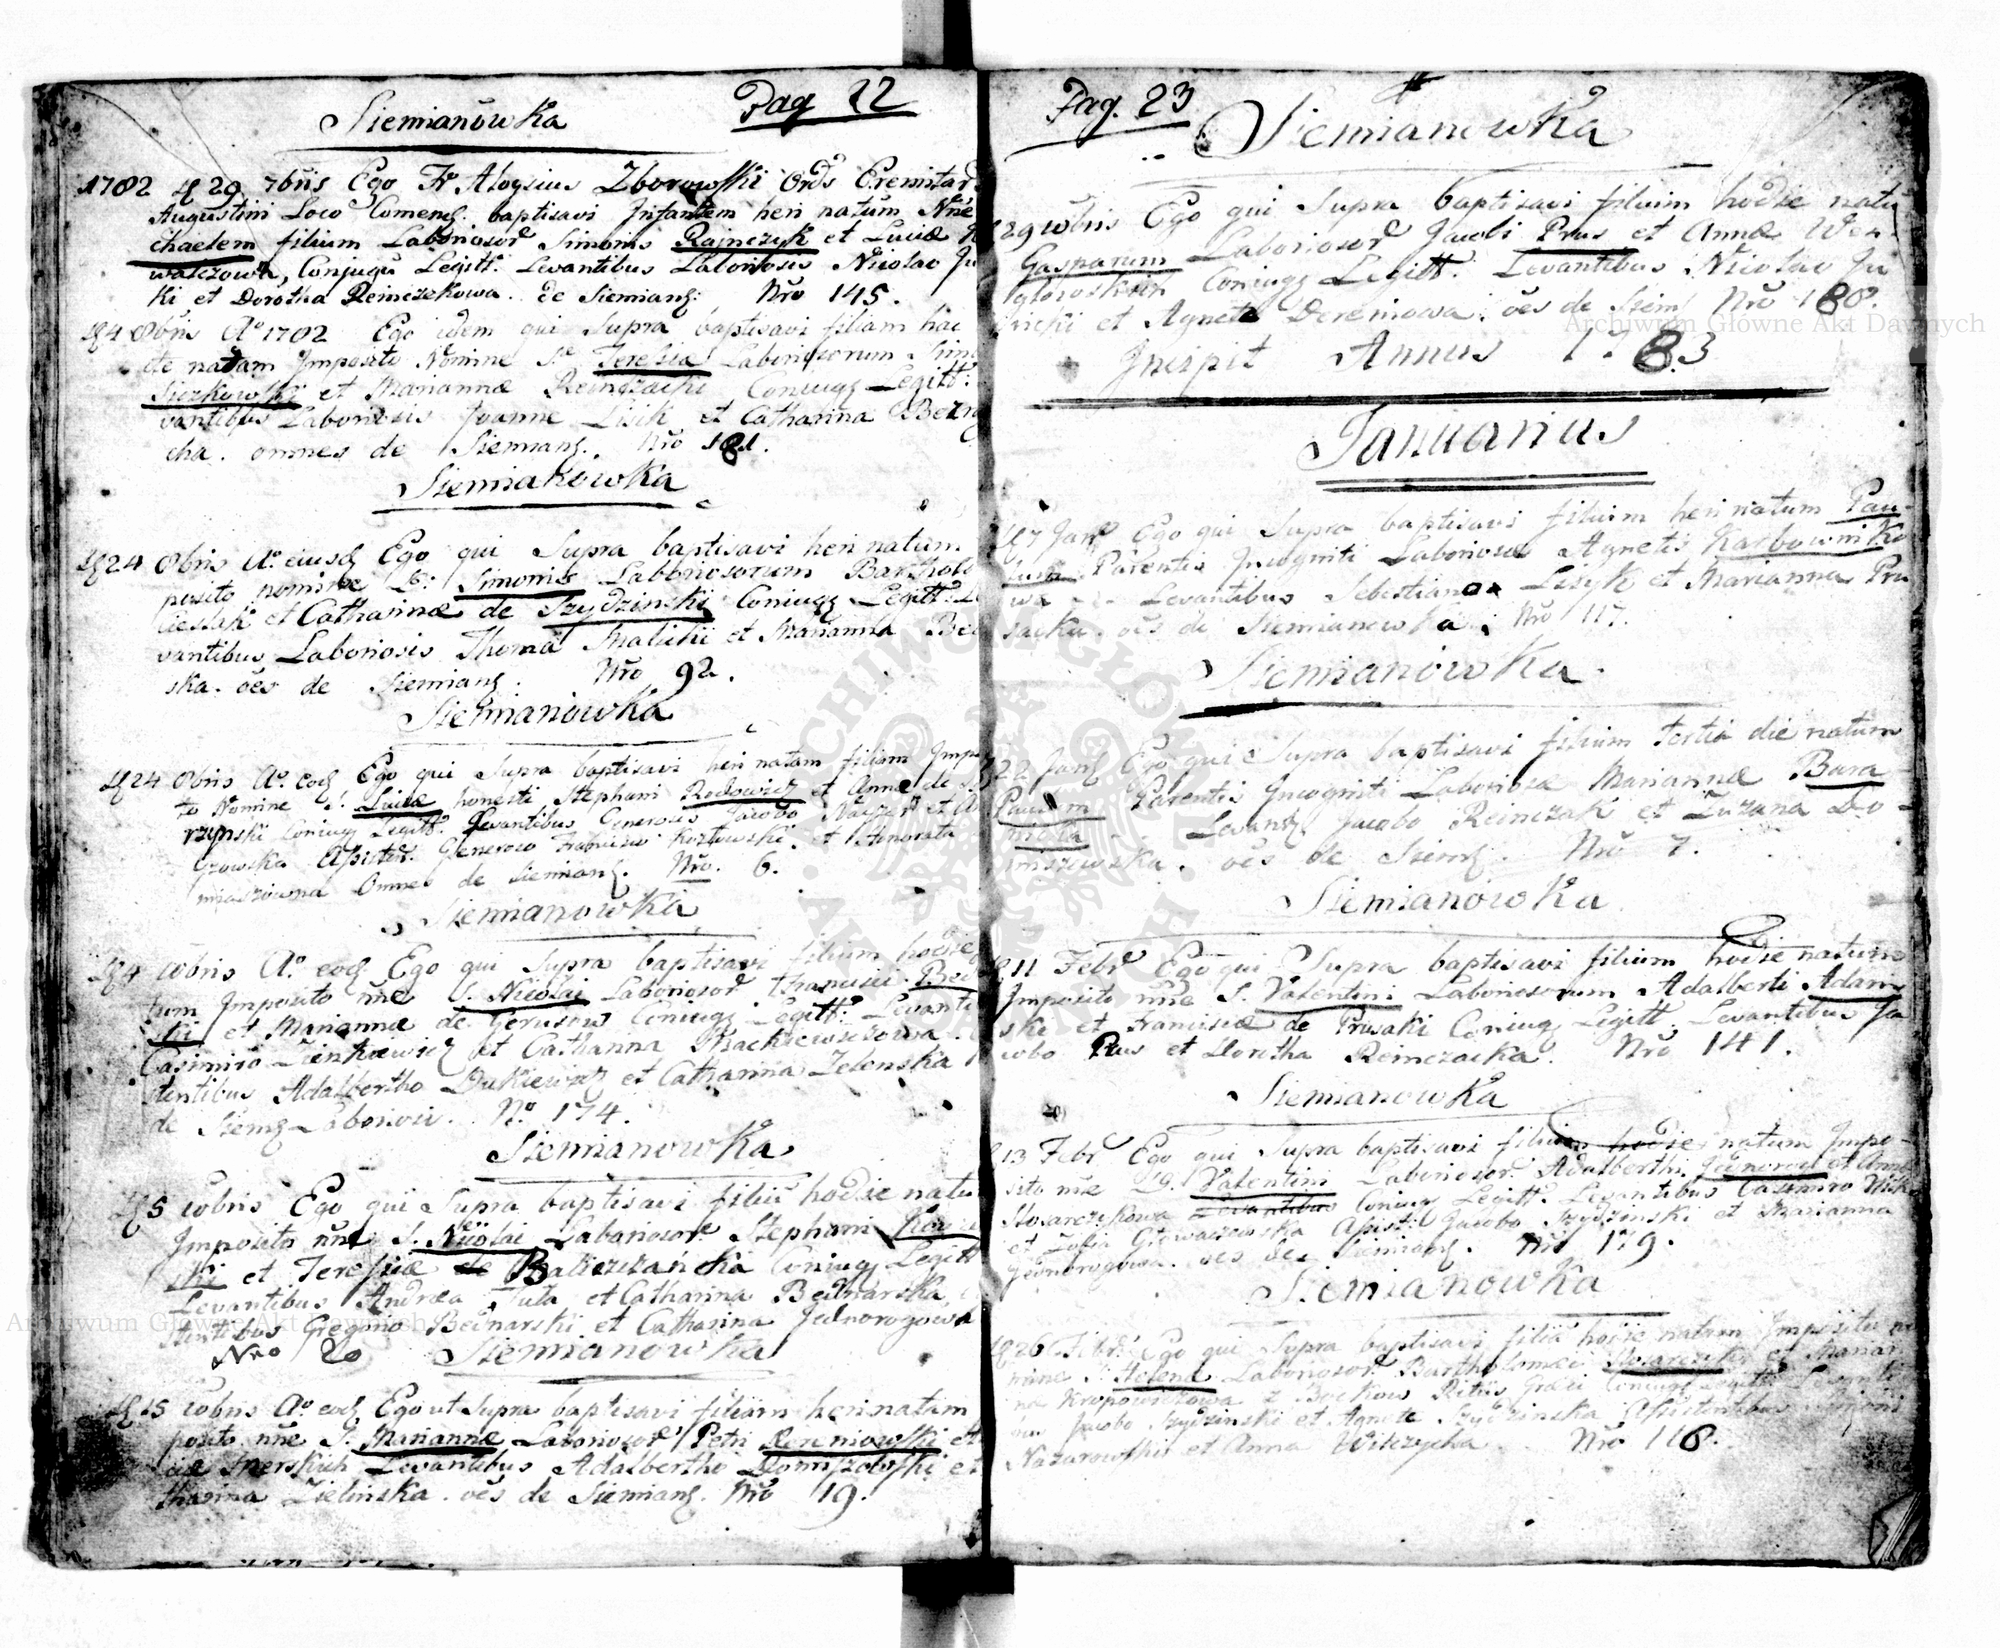 Pag 22
Siemianówka
1782 d 29 7bris Ego Fr Aloysius Zborowski Ords Eremitar
Augustini Loco Comend. baptisavi Infantem heri natum Nne
chaelem filium Laboriosor Simonis Rajnczyk et Luciæ
walczowa, Conjugu Legitt. Levantibus Laboriosis Nicolao Ju
ki et Dorotha Reinczekowa. de Siemian: Nro 145.
d 4 8bris Ao 1782 Ego idem qui Supra baptisavi filiam hac
die natam Imposito Nomine Sæ Teresia Laboriosorum
Siezkowski et Mariannæ Reinczacki Coniug Legitt.
vantibus Laboriosis Joanne Lisik et Catharina
cha. omnes de Siemian. Nro 181.
Siemianowka
d 24 8bris Ao. eiusd Ego qui Supra baptisavi heri natum
posito nomine S: Simonis Laboriosorum Bartholo
cieslak et Catharinæ de Szydzinski Coniug Legitt. Le
vantibus Laboriosis Thoma Malicki et Marianna Bed
ska. oes de Siemian. Nro 92.
Siemianówka
d 24 8bris Ao. eod Ego qui Supra baptisavi heri natam filiam Impo
to Nomine S. Luciæ honesti Stephani Rodowicz et Annæ de
rzynski Coniug Legitt. Levantibus Generosis Jacobo
czowska Assisten. Generoso Kozlowski et Honorata
Omnes de Siemian. Nro. 6.
Siemianowka
d 4 xbris Ao. eod Ego qui Supra baptisavi filium hodie
tum Imposito nne S. Nicolai Laboriosor Francisci Bed
ski et Mariannæ de Gerusow Coniug Legitt. Levanti
Casimiro Zienkiewicz et Catharina
stentibus Adalbertho Dukiewicz et Catharina Zelenska
de Siem Laboriosi. No. 174.
Siemianowka
d 5 xbris Ego qui Supra baptisavi filiu hodie natu
Imposito nne S. Nicolai Laboriosor Stephani
ski et Teresiæ de Coniug Legitt
Levantibus Andrea Juta et Catharina Bednarska,
stentibus Gregorio Bednarski et Catharina Jednorogowa
Nro 20
Siemianowka
d 15 xbris Ao. eod Ego ut Supra baptisavi filiam heri natam
posito nne S. Mariannæ Laboriosor Petri Dereniowski et
ciæ Levantibus Adalbertho Domiszewski et
tharina Zielinska. oes de Siemian. Nro 19.
Pag. 23
Siemianowka
29 xbris Ego qui Supra baptisavi filium hodie natu
Gasparum Laboriosor Jacobi Prus et Annæ We
Coniug Legitt. Levantibus Nicolao Ju
et Agneta Dereniowa. oes de Siem Nro 188.
Incipit Annus 1783
Januarius
d 7 Jan Ego qui Supra baptisavi filium heri natum Pau
lum Parentis Incogniti Laboriosæ Agnetis Karbowniko
wa Levantibus Sebestiano Lisyk et Marianna Pru
sacka. oes de Siemianowka. Nro 117.
Siemianówka.
22 Jan Ego qui Supra baptisavi filium tertia die natum
Paulum Parentis Incogniti Laboriosæ Mariannæ Bara
Levant Jacobo Reinczak et Zuzana Do
miszewska. oes de Siem. Nro 7.
Siemianówka
11 Febr Ego qui Supra baptisavi filium hodie natum
Imposito nne S. Valentini Laboriosorum Adalberti Adam
ski et Franciscæ de Prusaki Coniug Legitt. Levantibus Ja
cobo Prus et Dorotha Reinczacka. Nro 141.
Siemianowka
13 Febr Ego qui Supra baptisavi filium hodie natum Impo
sito nne S. Valentini Laboriosor Adalberthi Jednorog et Annæ
Slosarczykowa Levantibus Coniug Legitt. Levantibus Casimiro
et Zofia Głowaczewska Assist: Jacobo Szydzinski et Marianna
Jednorogowa. oes de Siemian. Nro 179.
Siemianowka
d 26 Febr: Ego qui Supra baptisavi filia hodie natam Imposito no
mine S. Helena Laboriosor Bartholomæi Slosarczyk et Marian
næ Kropowiczowa z Bockow Ritus Græci Coniug Legitt Levanti
bus Jacobo Szydzinski et Agneta Szydzinska Assistentibus
Nazarowski et Anna Wilczycka. Nro 118.
Archiwum Główne Akt Dawnych
Archiwum Główne Akt Dawnych
ARCHIWUM GŁÓWNE AKT DAWNYCH